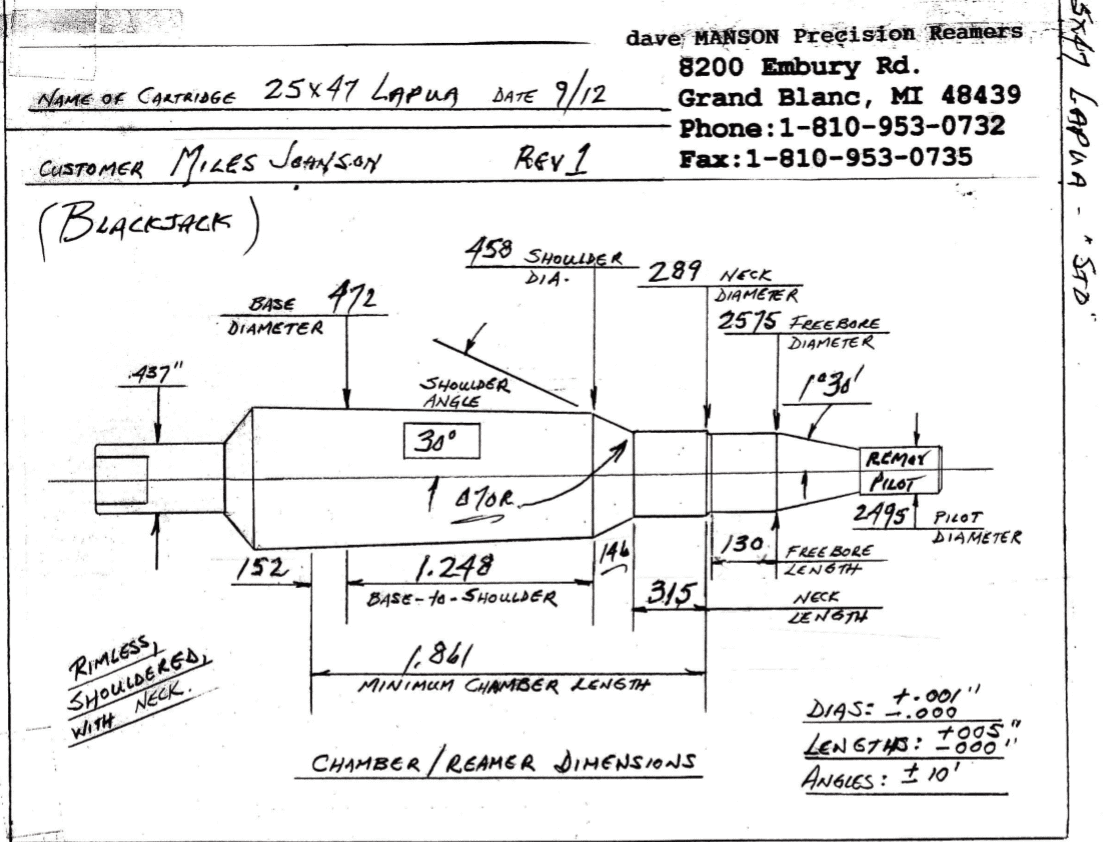 dave MANSON Precision Reamers
8200 Embury Rd.
Grand Blanc, MI 48439
Phone:1-810-953-0732
Fax:1-810-953-0735
NAME OF CARTRIDGE 25X47 LAPUA DATE 9/12
CUSTOMER MILES JOHNSON REV 1
(BLACKJACK)
458 SHOULDER
DIA.
289 NECK
DIAMETER
BASE 472
DIAMETER
2575 FREEBORE
DIAMETER
.437"
SHOULDER
ANGLE
30°
1°30'
070R.
REMOV
PILOT
2495 PILOT
DIAMETER
152
1.248
BASE-to-SHOULDER
146
130 FREEBORE
LENGTH
315 NECK
LENGTH
1.861
MINIMUM CHAMBER LENGTH
RIMLESS,
SHOULDERED,
WITH NECK.
CHAMBER/REAMER DIMENSIONS
DIAS: +.001"
-.000
LENGTHS: +005"
-000"
ANGLES: ± 10'
LAPUA - "STD"